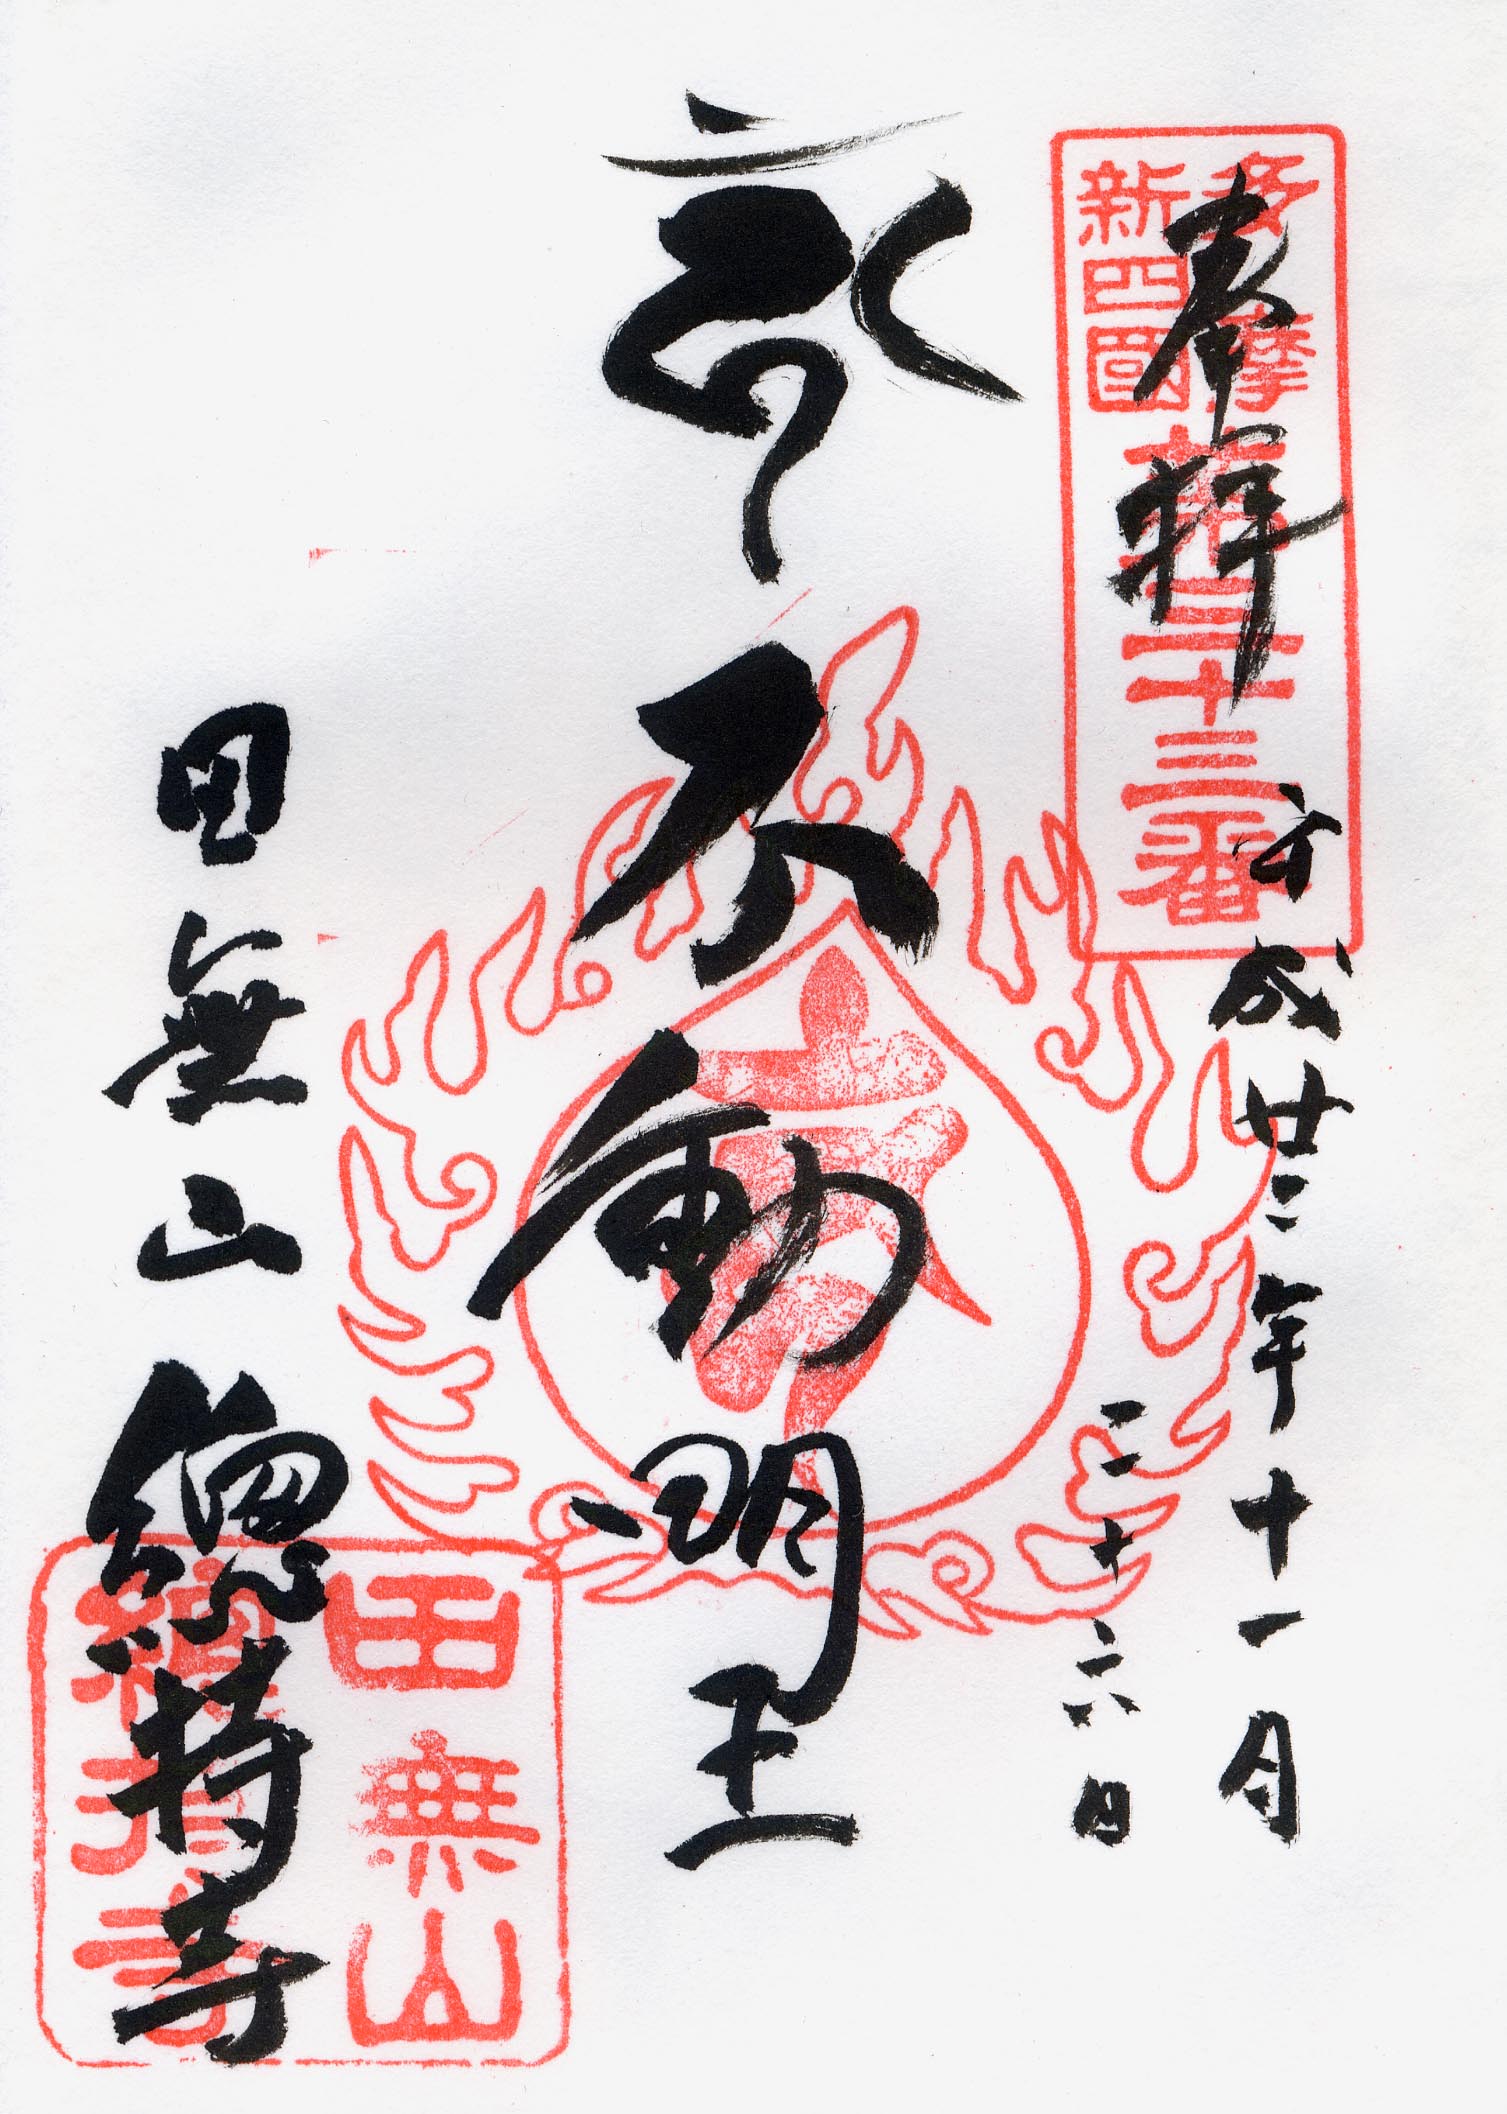 奉拝
多摩
新四國
第三十三番
平成廿二年十一月
二十六日
不動明王
田無山 總持寺
田無山
總持寺